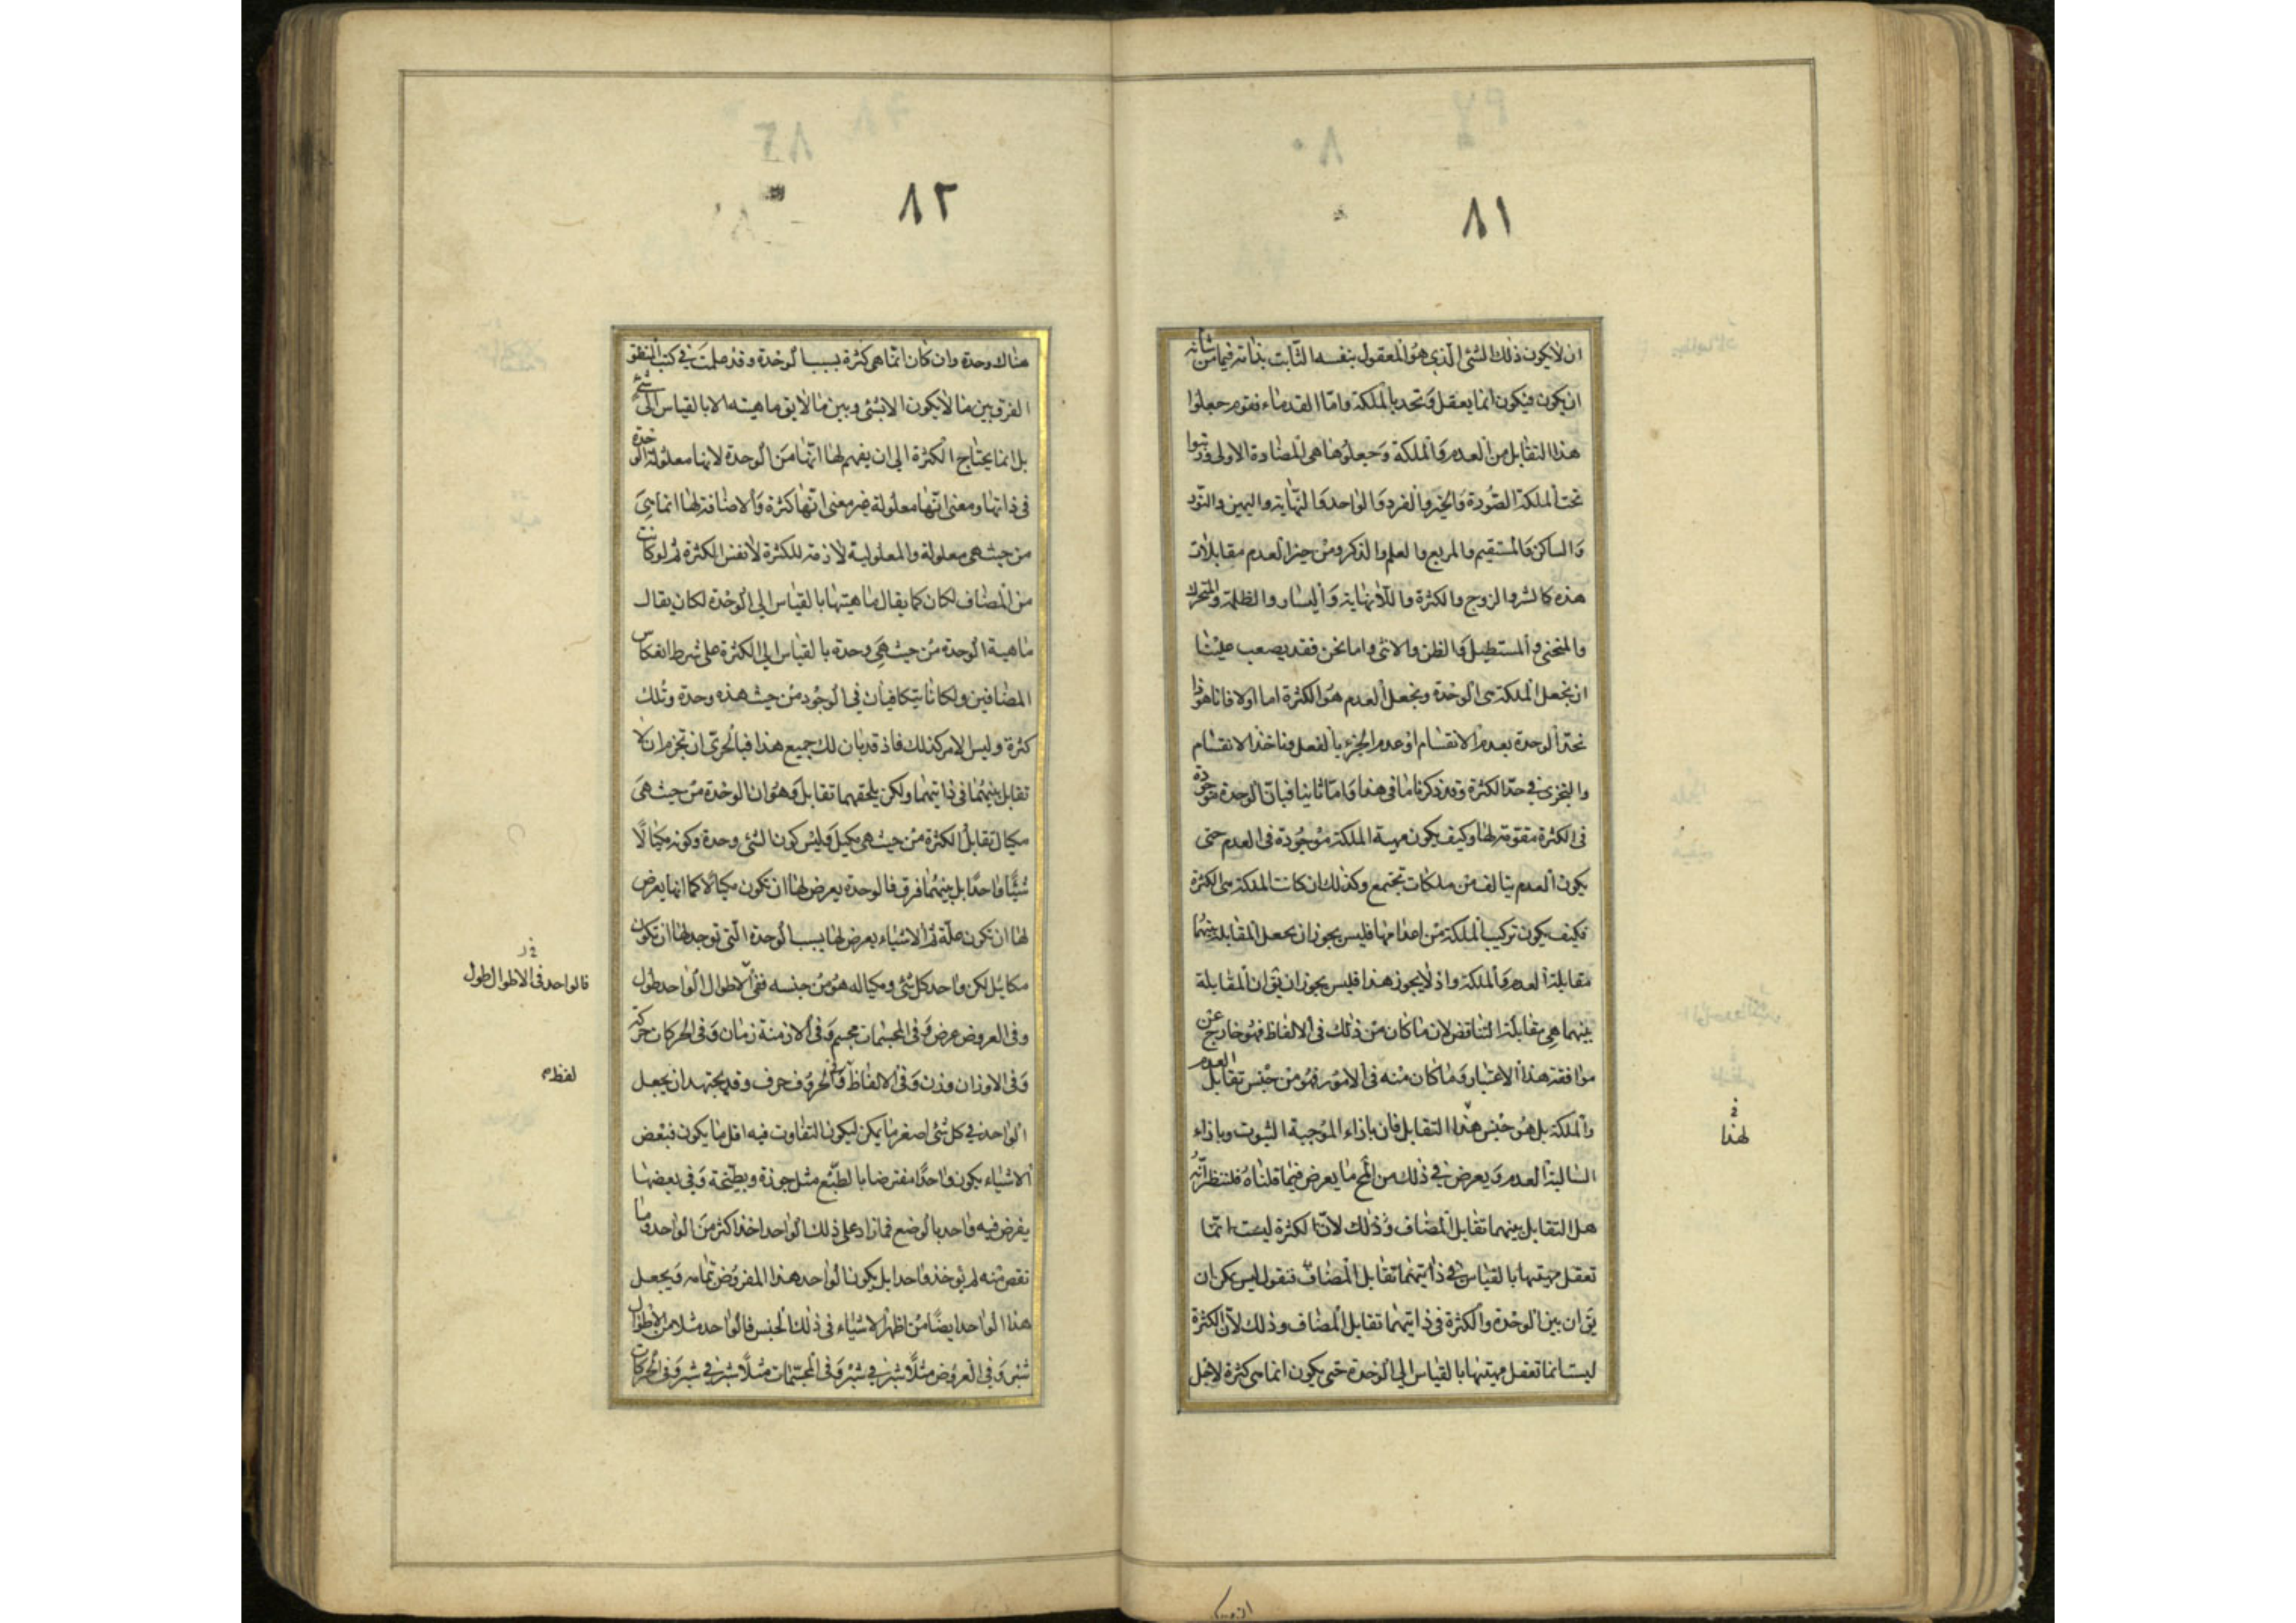 ٨١
ان لا يكون ذلك الشئ الذى هو المعقول بنفسه الثابت بذاته فيما من شأنه
ان يكون فيكون انما يعقل وتحد بالملكة واما القدماء فقوم جعلوا
هذا التقابل من العدم والملكة وجعلوها هى المضادة الاولى ورتبوا
تحت الملكة الصورة والخير والفرد والواحد والنهاية واليمين والنور
والساكن والمستقيم والمربع والعلم والذكر ومن حيز العدم مقابلات
هذه كالشر والزوج والكثرة واللانهاية واليسار والظلمة والمتحرك
والمنحنى والمستطيل والظن والانثى واما نحن فقد يصعب علينا
ان نجعل الملكة هى الوحدة ونجعل العدم هو الكثرة اما اولا فانا هوذا
نحد الوحدة بعدم الانقسام او عدم الجزء بالفعل وناخذ الانقسام
والتجزى فى حد الكثرة وقد ذكرنا ما فى هذا واما ثانيا فبان الوحدة موجودة
فى الكثرة مقومة لها وكيف يكون مهية الملكة موجودة فى العدم حتى
يكون العدم يتالف من ملكات تجتمع وكذلك ان كانت الملكة هى الكثرة
فكيف يكون تركيب الملكة من اعدامها فليس يجوز ان يجعل المقابلة بينهما
مقابلة العدم والملكة واذ لا يجوز هذا فليس يجوز ان يق ان المقابلة
بينهما هى مقابلة التناقض لان ما كان من ذلك فى الالفاظ فهو خارج عن
موافقة هذا الاعتبار وما كان منه فى الامور فهو من جنس تقابل العدم
والملكة بل هو جنس هذا التقابل فان بازاء الموجبة الثبوت وبازاء
السالبة العدم ويعرض فى ذلك من المح ما يعرض فيما قلناه فلننظر انه
هل التقابل بينهما تقابل المضاف وذلك لان الكثرة ليست انما
تعقل مهيتها بالقياس فى ذاتيهما تقابل المضاف فنقول ليس يمكن ان
يق ان بين الوحدة والكثرة فى ذاتيهما تقابل المضاف وذلك لان الكثرة
ليست انما تعقل مهيتها بالقياس الى الوحدة حتى يكون انما هى كثرة لاجل
لهذا
٨٢
هناك وحدة وان كان انما هى كثرة بسبب الوحدة وقد علمت فى كتب المنطق
الفرق بين ما لا يكون الا بشئ وبين ما لا يق ماهيته الا بالقياس الى شئ
بل انما يحتاج الكثرة الى ان يفهم لها انها من الوحدة لانها معلولة الوحدة
فى ذاتها ومعنى انها معلولة غير معنى انها كثرة والاضافة لها انما هى
من حيث هى معلولة والمعلولية لازمة للكثرة لا نفس الكثرة ثم لو كانت
من المضاف لكان كما يقال ماهيتها بالقياس الى الوحدة لكان يقال
ماهية الوحدة من حيث هى وحدة بالقياس الى الكثرة على شرط انعكاس
المضافين ولكانا يتكافيان فى الوجود من حيث هذه وحدة وتلك
كثرة وليس الامر كذلك فاذ قد بان لك جميع هذا فبالحرى ان تجزم ان لا
تقابل بينهما فى ذاتيهما ولكن يلحقهما تقابل وهو ان الوحدة من حيث هى
مكيال تقابل الكثرة من حيث هى مكيل وليس كون الشئ وحدة وكونه مكيالا
شيئا واحدا بل بينهما فرق فالوحدة يعرض لها ان تكون مكيالا كما انها يعرض
لها ان تكون علة ثم الاشياء يعرض لها بسبب الوحدة التى توجد لها ان تكون
مكائيل لكن واحد كل شئ ومكياله هو من جنسه ففى الاطوال الواحد طول
وفى العروض عرض وفى المجسمات مجسم وفى الازمنة زمان وفى الحركات حركة
وفى الاوزان وزن وفى الالفاظ وفى الحروف حرف وقد يجتهد ان يجعل
الواحد فى كل شئ اصغر ما يمكن ليكون التفاوت فيه اقل ما يكون فبعض
الاشياء يكون واحدا مفترضا بالطبع مثل جوزة وبطيخة وفى بعضها
يفرض فيه واحد بالوضع فما زاد على ذلك الواحد اخذ اكثر من الواحد وما
نقص منه لم يوخذ واحدا بل يكون الواحد هذا المفروض بتمامه ويجعل
هذا الواحد ايضا من اظهر الاشياء فى ذلك الجنس فالواحد مثلا من الاطوال
شبر وفى العروض مثلا شبر فى شبر وفى المجسمات مثلا شبر فى شبر وفى الحركات
فالواحد فى الاطوال طول
لفظ م